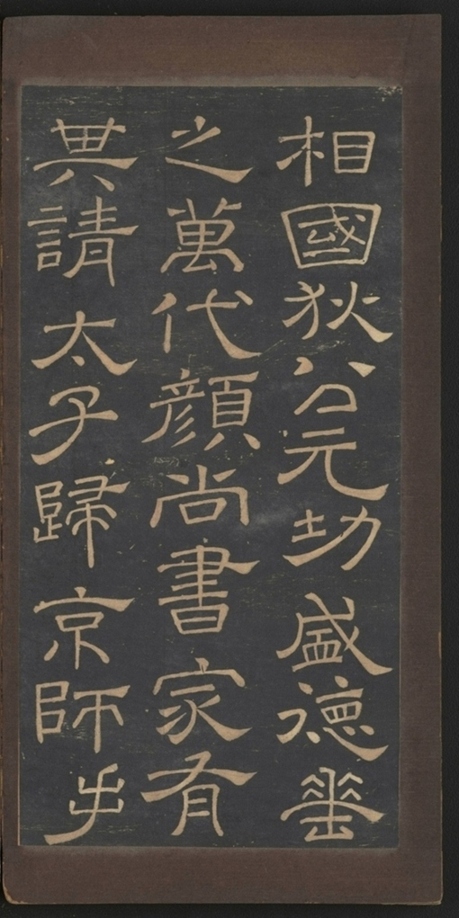 相國狄公元功盛德垂
之萬代顔尚書家有
其請太子歸京師手